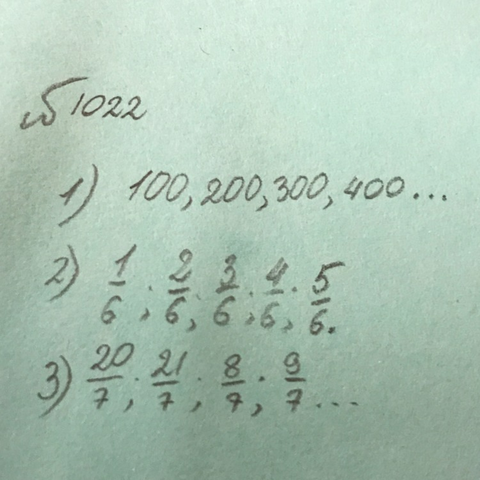 №1022
1) 100, 200, 300, 400...
2) 1/6; 2/6; 3/6; 4/6; 5/6.
3) 20/7; 21/7; 8/7; 9/7...